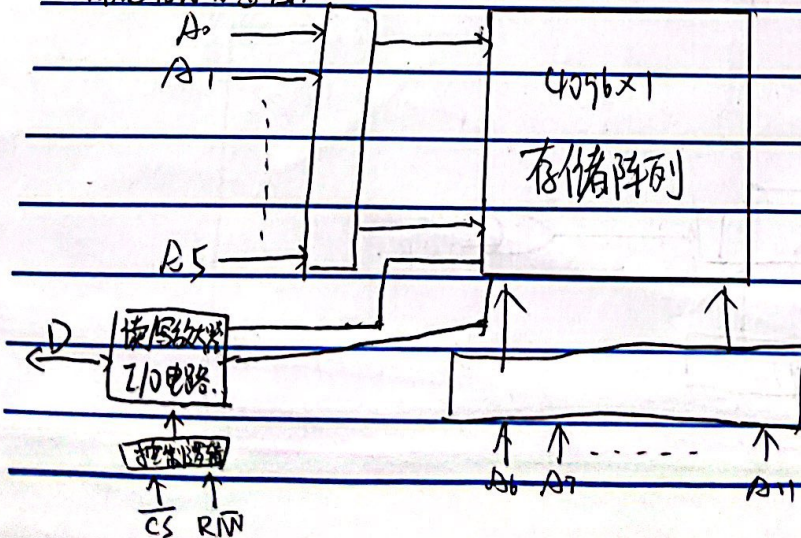 A₀
A₁
A₅
4096×1
存储阵列
D
读/写放大器
I/O电路.
控制逻辑
C̅S̅
R/W̅
A₆ A₇ A₁₁